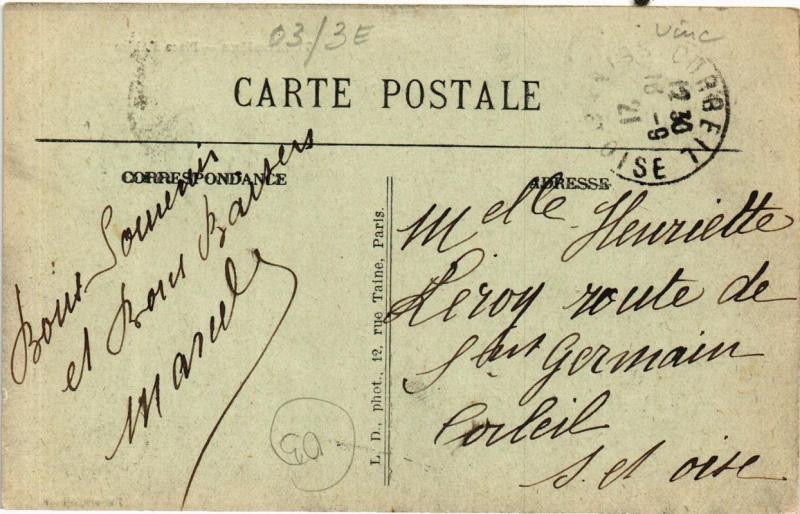 03/3E
Vinc
CARTE POSTALE
CORBEIL
12 30
17 -9
18
OISE
CORRESPONDANCE
ADRESSE
Bons Souvenirs
et Bons Baisers
Marcel
L. D., phot., 12, rue Taine, Paris.
Melle Henriette
Leroy route de
St Germain
Corbeil
S. et oise
03